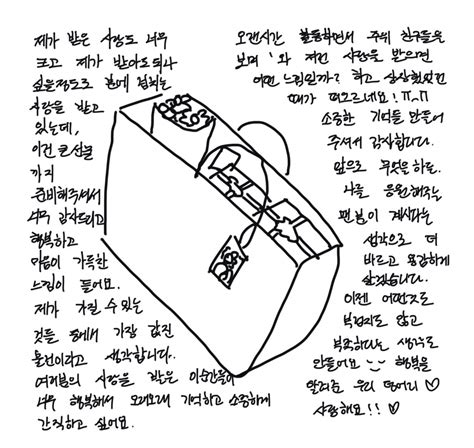 제가 받은 사랑도 너무
크고 제가 받아도 되나
싶을정도로 분에 넘치는
사랑을 받고
있는데,
이건 큰 선물
까지
준비해주셔서
너무 감사드리고
행복하고
마음이 가득한
느낌이 들어요.
제가 가질 수 있는
것들 중에서 가장 값진
물건이라고 생각합니다.
여러분의 사랑을 받은 이 순간들이
너무 행복해서 오래오래 기억하고 소중하게
간직하고 싶어요.
오랜시간 활동하면서 주위 친구들을
보며 '와 저런 사랑을 받으면
어떤 느낌일까? 하고 상상했었던
때가 떠오르네요! ㅠㅅㅠ
소중한 기억을 만들어
주셔서 감사합니다.
앞으로 무엇을 하든
나를 응원해주는
팬분이 계시다는
생각으로 더
바르고 용감하게
살겠습니다.
이젠 어떤것도
부럽지도 않고
부족하다는 생각도
안들어요 행복을
알려준 우리 덩어리 ♡
사랑해요!! ♡